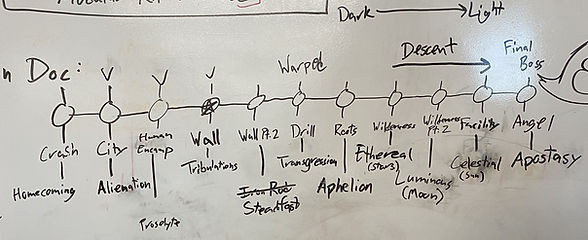 Dark → Light
n Doc:
Warped
Descent
Final
Boss
Crash
City
Human
Encamp
Wall
Wall Pt.2
Drill
Roots
Wilderness
Wilderness
Pt. 2
Facility
Angel
Homecoming
Alienation
Proselyte
Tribulations
Iron Rod
Steadfast
Transgression
Aphelion
Ethereal
(Stars)
Luminous
(Moon)
Celestial
(Sun)
Apostasy